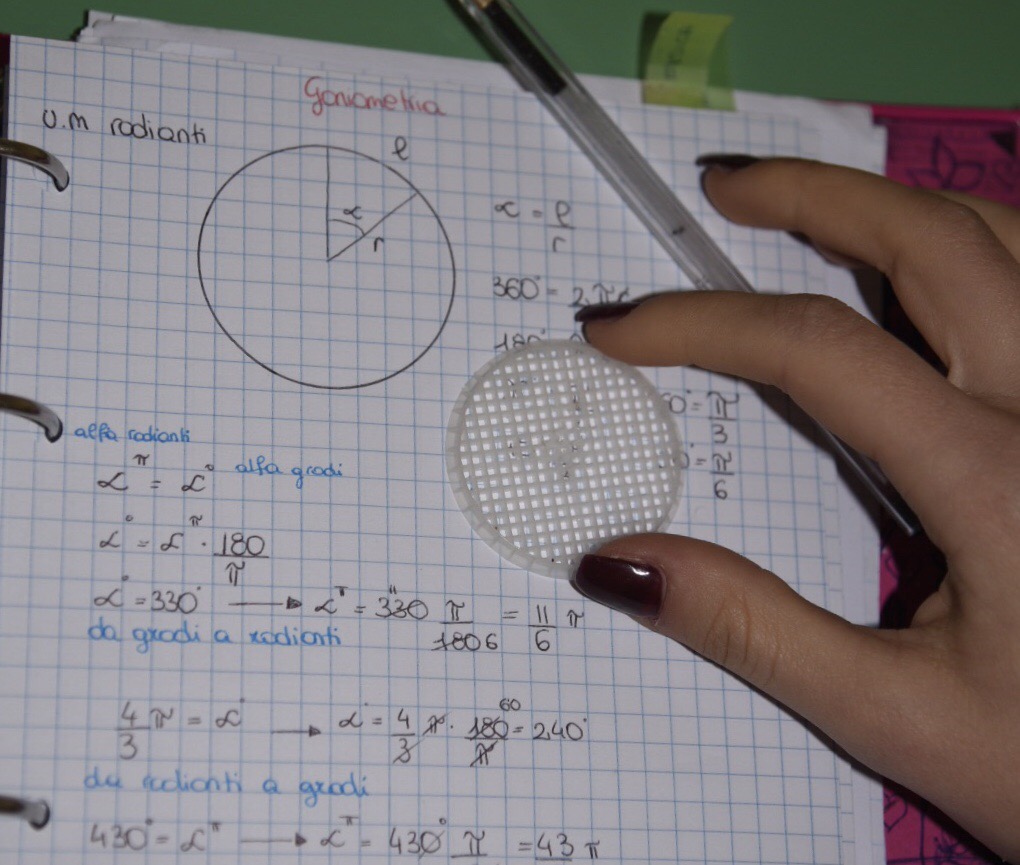 Goniometria
U.M radianti
l
α
r
α = l/r
360° = 2π
180°
0° = π/3
° = π/6
alfa radianti
α^π = α° alfa gradi
α° = α^π · 180/π
α° = 330° → α^π = 330 11 π/180 6 = 11/6 π
da gradi a radianti
4/3 π = α° → α° = 4/3 π · 180 60/π = 240°
da radianti a gradi
430° = α^π → α^π = 430° π = 43 π